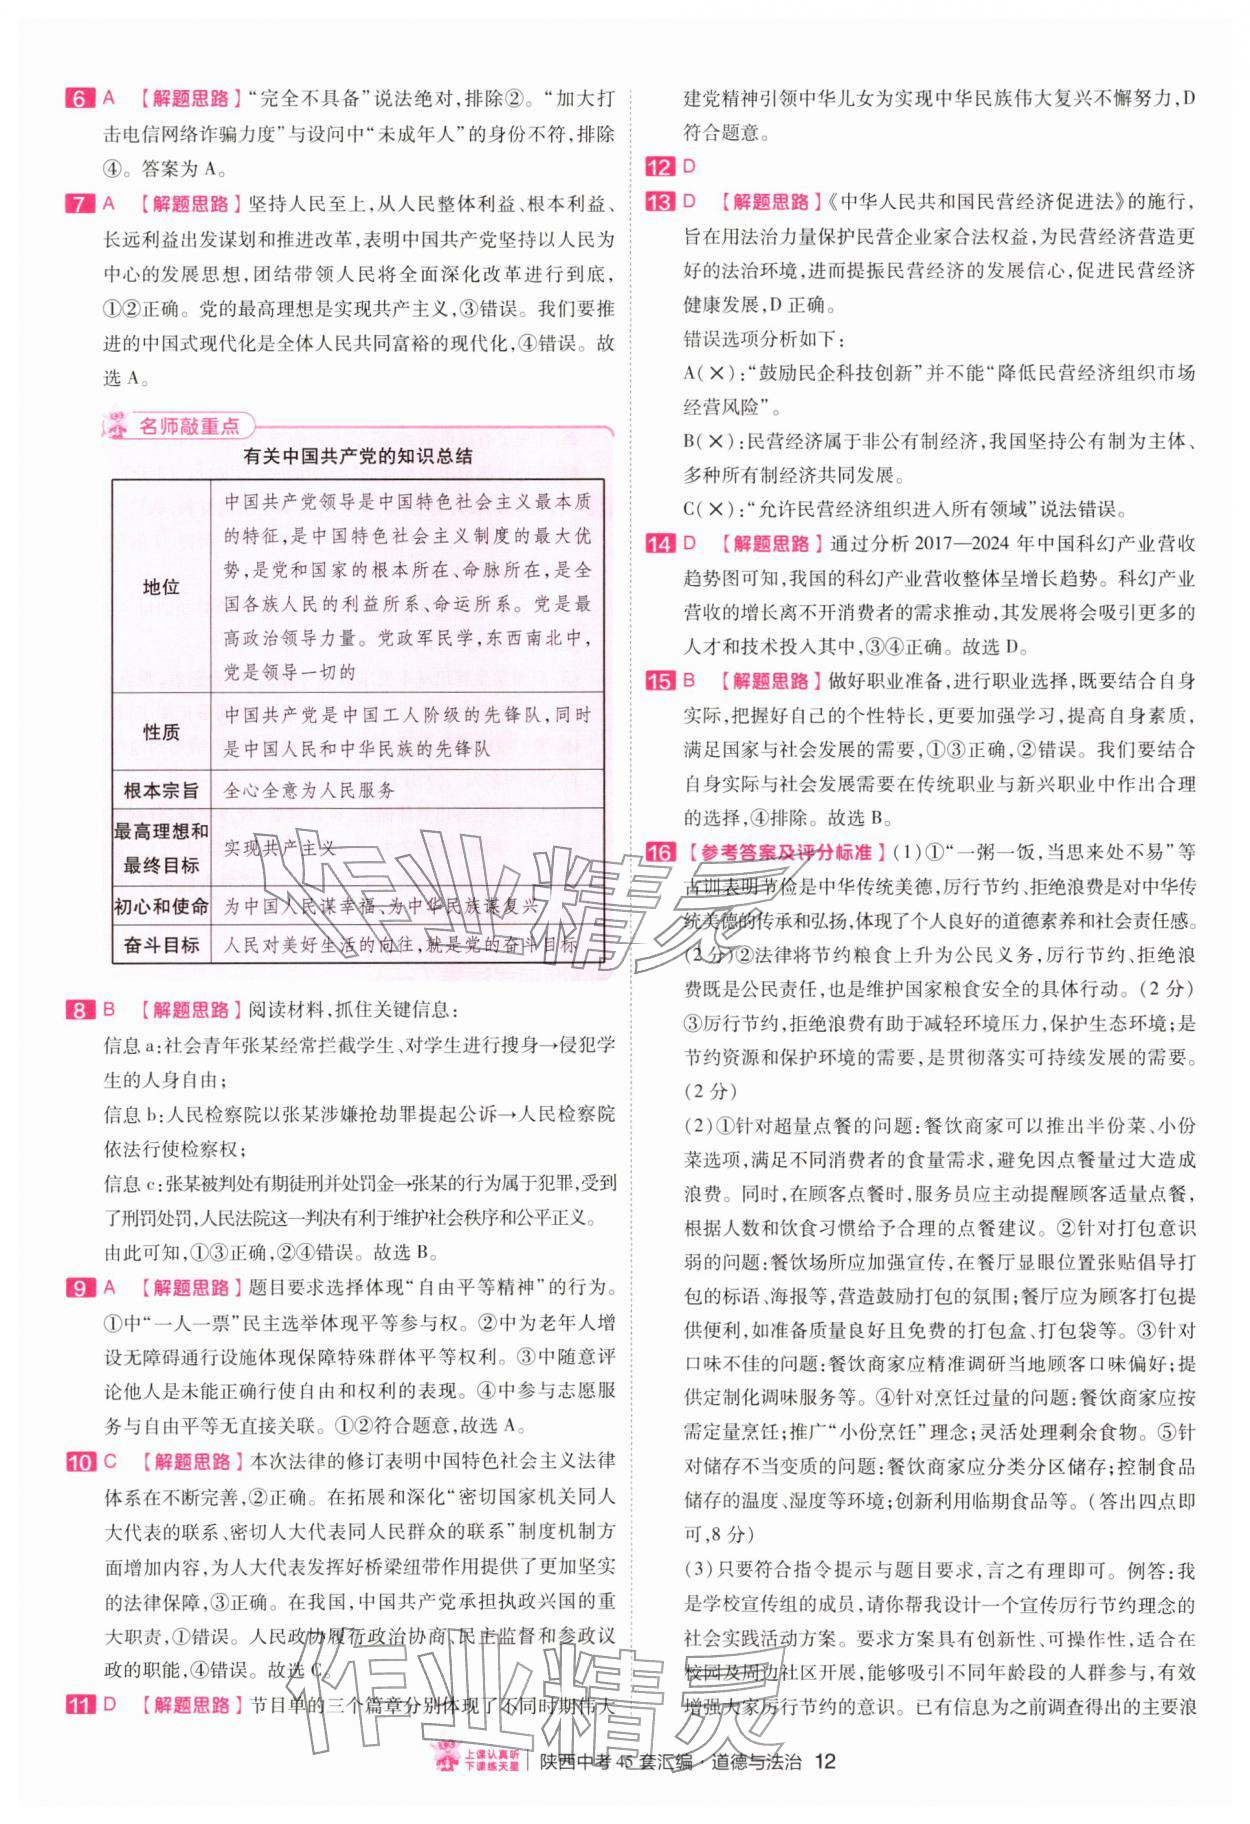 6 A 【解题思路】“完全不具备”说法绝对,排除②。“加大打
击电信网络诈骗力度”与设问中“未成年人”的身份不符,排除
④。答案为 A。
7 A 【解题思路】坚持人民至上,从人民整体利益、根本利益、
长远利益出发谋划和推进改革,表明中国共产党坚持以人民为
中心的发展思想,团结带领人民将全面深化改革进行到底,
①②正确。党的最高理想是实现共产主义,③错误。我们要推
进的中国式现代化是全体人民共同富裕的现代化,④错误。故
选 A。
名师敲重点
有关中国共产党的知识总结
地位
中国共产党领导是中国特色社会主义最本质
的特征,是中国特色社会主义制度的最大优
势,是党和国家的根本所在、命脉所在,是全
国各族人民的利益所系、命运所系。党是最
高政治领导力量。党政军民学,东西南北中,
党是领导一切的
性质
中国共产党是中国工人阶级的先锋队,同时
是中国人民和中华民族的先锋队
根本宗旨 全心全意为人民服务
最高理想和
最终目标
实现共产主义
初心和使命 为中国人民谋幸福、为中华民族谋复兴
奋斗目标 人民对美好生活的向往,就是党的奋斗目标
8 B 【解题思路】阅读材料,抓住关键信息:
信息 a:社会青年张某经常拦截学生、对学生进行搜身→侵犯学
生的人身自由;
信息 b:人民检察院以张某涉嫌抢劫罪提起公诉→人民检察院
依法行使检察权;
信息 c:张某被判处有期徒刑并处罚金→张某的行为属于犯罪,受到
了刑罚处罚,人民法院这一判决有利于维护社会秩序和公平正义。
由此可知,①③正确,②④错误。故选 B。
9 A 【解题思路】题目要求选择体现“自由平等精神”的行为。
①中“一人一票”民主选举体现平等参与权。②中为老年人增
设无障碍通行设施体现保障特殊群体平等权利。③中随意评
论他人是未能正确行使自由和权利的表现。④中参与志愿服
务与自由平等无直接关联。①②符合题意,故选 A。
10 C 【解题思路】本次法律的修订表明中国特色社会主义法律
体系在不断完善,②正确。在拓展和深化“密切国家机关同人
大代表的联系、密切人大代表同人民群众的联系”制度机制方
面增加内容,为人大代表发挥好桥梁纽带作用提供了更加坚实
的法律保障,③正确。在我国,中国共产党承担执政兴国的重
大职责,①错误。人民政协履行政治协商、民主监督和参政议
政的职能,④错误。故选 C。
11 D 【解题思路】节目单的三个篇章分别体现了不同时期伟大
建党精神引领中华儿女为实现中华民族伟大复兴不懈努力,D
符合题意。
12 D
13 D 【解题思路】《中华人民共和国民营经济促进法》的施行,
旨在用法治力量保护民营企业家合法权益,为民营经济营造更
好的法治环境,进而提振民营经济的发展信心,促进民营经济
健康发展,D 正确。
错误选项分析如下:
A(×):“鼓励民企科技创新”并不能“降低民营经济组织市场
经营风险”。
B(×):民营经济属于非公有制经济,我国坚持公有制为主体、
多种所有制经济共同发展。
C(×):“允许民营经济组织进入所有领域”说法错误。
14 D 【解题思路】通过分析 2017—2024 年中国科幻产业营收
趋势图可知,我国的科幻产业营收整体呈增长趋势。科幻产业
营收的增长离不开消费者的需求推动,其发展将会吸引更多的
人才和技术投入其中,③④正确。故选 D。
15 B 【解题思路】做好职业准备,进行职业选择,既要结合自身
实际,把握好自己的个性特长,更要加强学习,提高自身素质,
满足国家与社会发展的需要,①③正确,②错误。我们要结合
自身实际与社会发展需要在传统职业与新兴职业中作出合理
的选择,④排除。故选 B。
16 【参考答案及评分标准】(1)①“一粥一饭,当思来处不易”等
古训表明节俭是中华传统美德,厉行节约、拒绝浪费是对中华传
统美德的传承和弘扬,体现了个人良好的道德素养和社会责任感。
(2 分)②法律将节约粮食上升为公民义务,厉行节约、拒绝浪
费既是公民责任,也是维护国家粮食安全的具体行动。(2 分)
③厉行节约,拒绝浪费有助于减轻环境压力,保护生态环境;是
节约资源和保护环境的需要,是贯彻落实可持续发展的需要。
(2 分)
(2)①针对超量点餐的问题:餐饮商家可以推出半份菜、小份
菜选项,满足不同消费者的食量需求,避免因点餐量过大造成
浪费。同时,在顾客点餐时,服务员应主动提醒顾客适量点餐,
根据人数和饮食习惯给予合理的点餐建议。②针对打包意识
弱的问题:餐饮场所应加强宣传,在餐厅显眼位置张贴倡导打
包的标语、海报等,营造鼓励打包的氛围;餐厅应为顾客打包提
供便利,如准备质量良好且免费的打包盒、打包袋等。③针对
口味不佳的问题:餐饮商家应精准调研当地顾客口味偏好;提
供定制化调味服务等。④针对烹饪过量的问题:餐饮商家应按
需定量烹饪;推广“小份烹饪”理念;灵活处理剩余食物。⑤针
对储存不当变质的问题:餐饮商家应分类分区储存;控制食品
储存的温度、湿度等环境;创新利用临期食品等。(答出四点即
可,8 分)
(3)只要符合指令提示与题目要求,言之有理即可。例答:我
是学校宣传组的成员,请你帮我设计一个宣传厉行节约理念的
社会实践活动方案。要求方案具有创新性、可操作性,适合在
校园及周边社区开展,能够吸引不同年龄段的人群参与,有效
增强大家厉行节约的意识。已有信息为之前调查得出的主要浪
作业精灵
作业精灵
上课认真听
下课练天星
陕西中考 45 套汇编·道德与法治 12